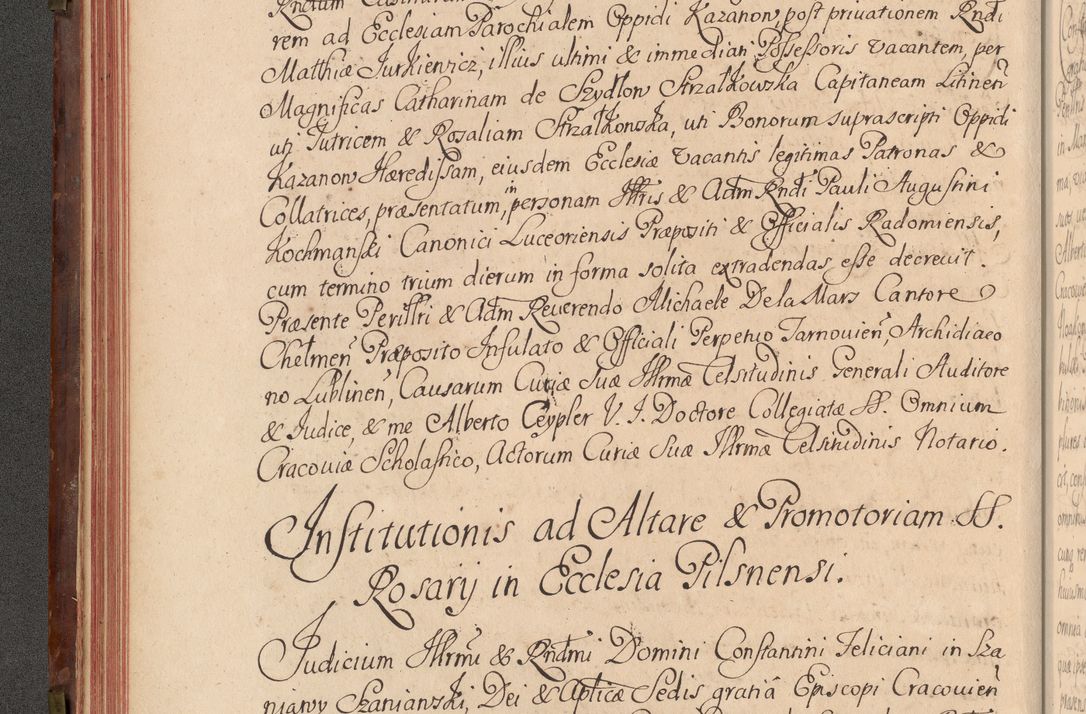 rem ad Ecclesiam Parochialem Oppidi Kazanow, post priuationem Rndi
Matthiæ Jurkiewicz, illius ultimi & immediati Possessoris vacantem, per
Magnificas Catharinam de Szydłow Strzałkowska Capitaneam Litinen̄
uti Tutricem & Rosaliam Strzałkowska, uti Bonorum suprascripti Oppidi
Kazanow Hæredissam, eiusdem Ecclesiæ vacantis legitimas Patronas &
Collatrices, præsentatum, in personam Illtris & Adm Rndi Pauli Augustini
Kochmanski Canonici Luceoriensis Præpositi & Officialis Radomiensis,
cum termino trium dierum in forma solita extradendas esse decreuit.
Præsente Perilltri & Adm Reuerendo Michaele De la Mars Cantore
Chełmen̄ Præposito Infulato & Officiali Perpetuo Tarnouien̄, Archidiaco
no Lublinen̄, Causarum Curiæ Suæ Illrmæ Celsitudinis Generali Auditore
& Judice, & me Alberto Ceypler V. J. Doctore Collegiatæ SS. Omnium
Cracouiæ Scholastico, Actorum Curiæ Suæ Illrmæ Celsitudinis Notario.
Institutionis ad Altare & Promotoriam SS.
Rosarij in Ecclesia Pilsnensi.
Judicium Illrmi & Rndmi Domini Constantini Feliciani in Sza
niawy Szaniawski, Dei & Aplicæ Sedis gratiâ Episcopi Cracouien̄